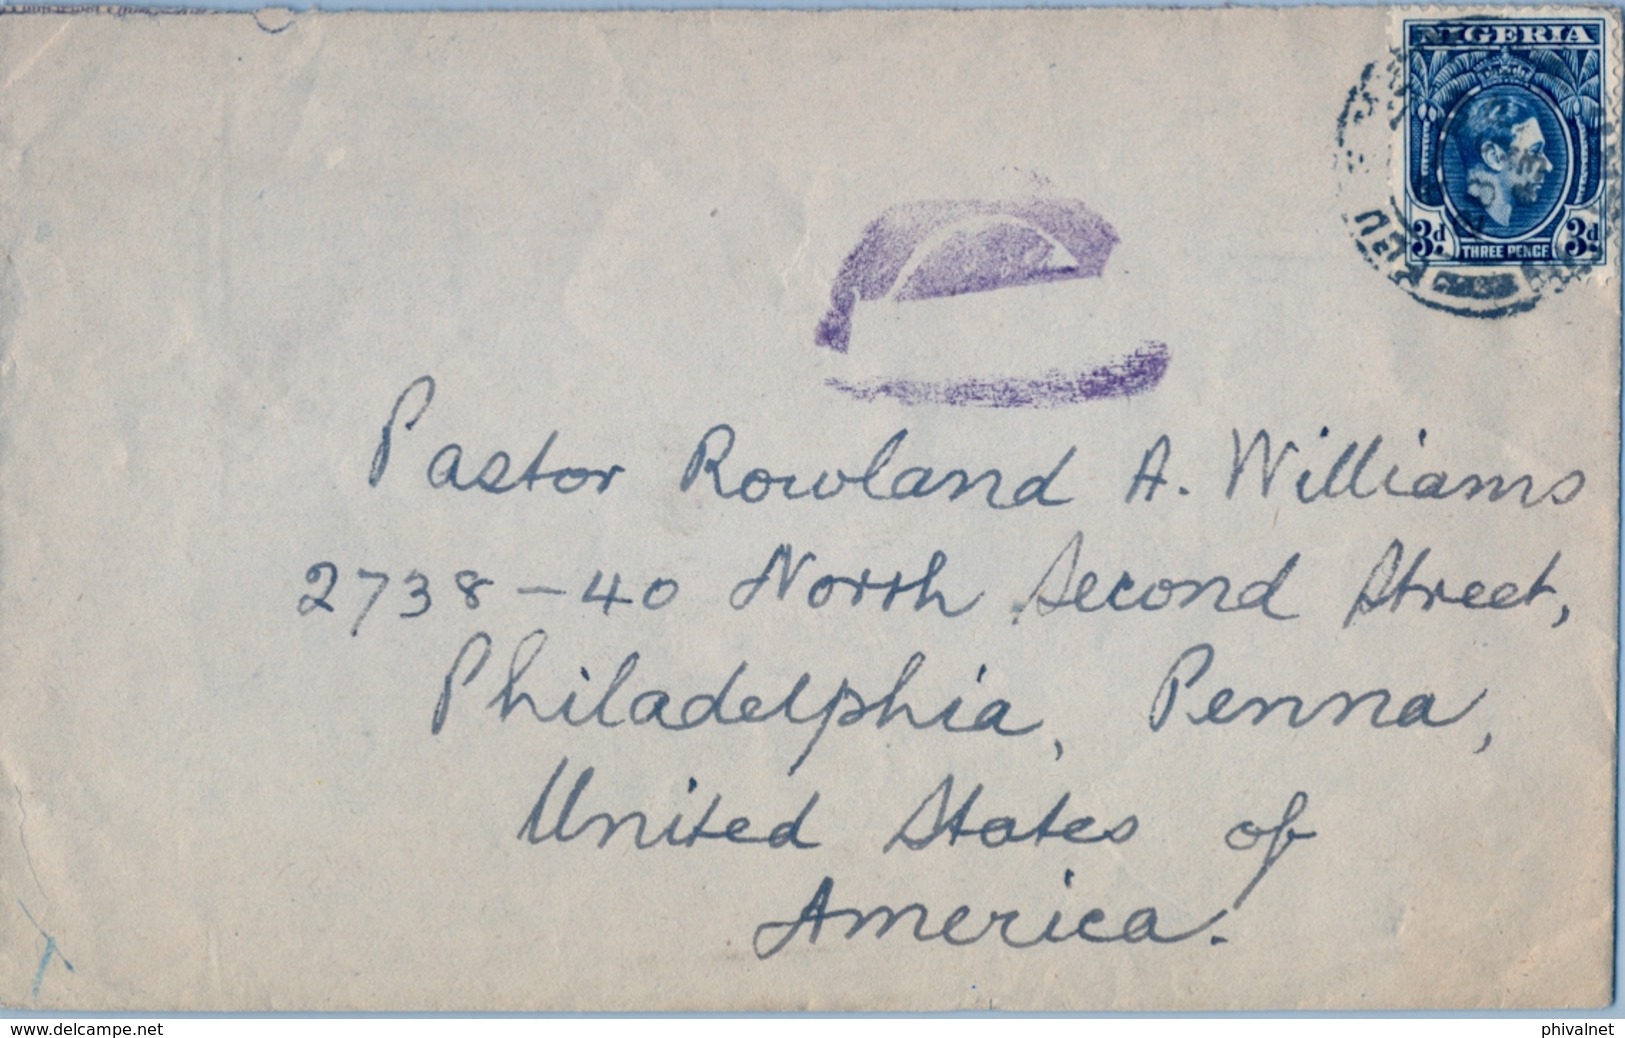 NIGERIA
3d THREE PENCE 3d
Pastor Rowland A. Williams
2738-40 North Second Street,
Philadelphia, Penna,
United States of
America.
www.delcampe.net
phivalnet